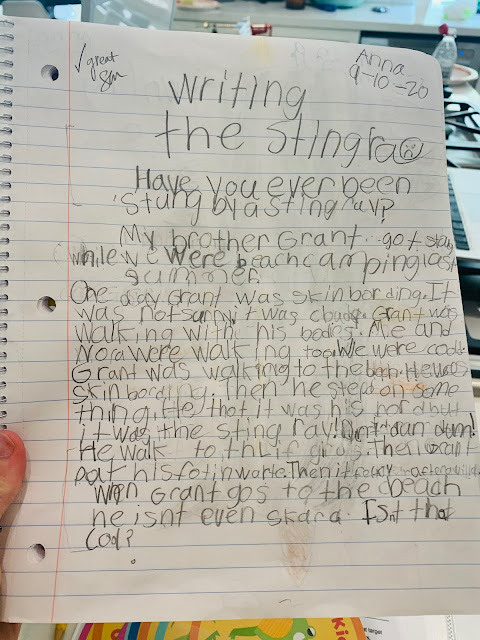 ✓ great
Anna
9-10-20
Writing
the stingray
Have you ever been
stung by a sting ray?
My brother Grant got stung
while we were beach camping last
summer.
One day Grant was skinbording. It
was not sunny it was cloudy. Grant was
walking with his bodies. Me and
Nora were walking too. We were cold.
Grant was walking to the bech. He was
skinbording. Then he sted on some
thing. He that it was his bord but
it was the sting ray! Dun dun dun!
He walk to th lif gros. Then Grant
pat his fot in warle. Then it
When Grant gos to the beach
he isnt even skard. Isnt that
cool?